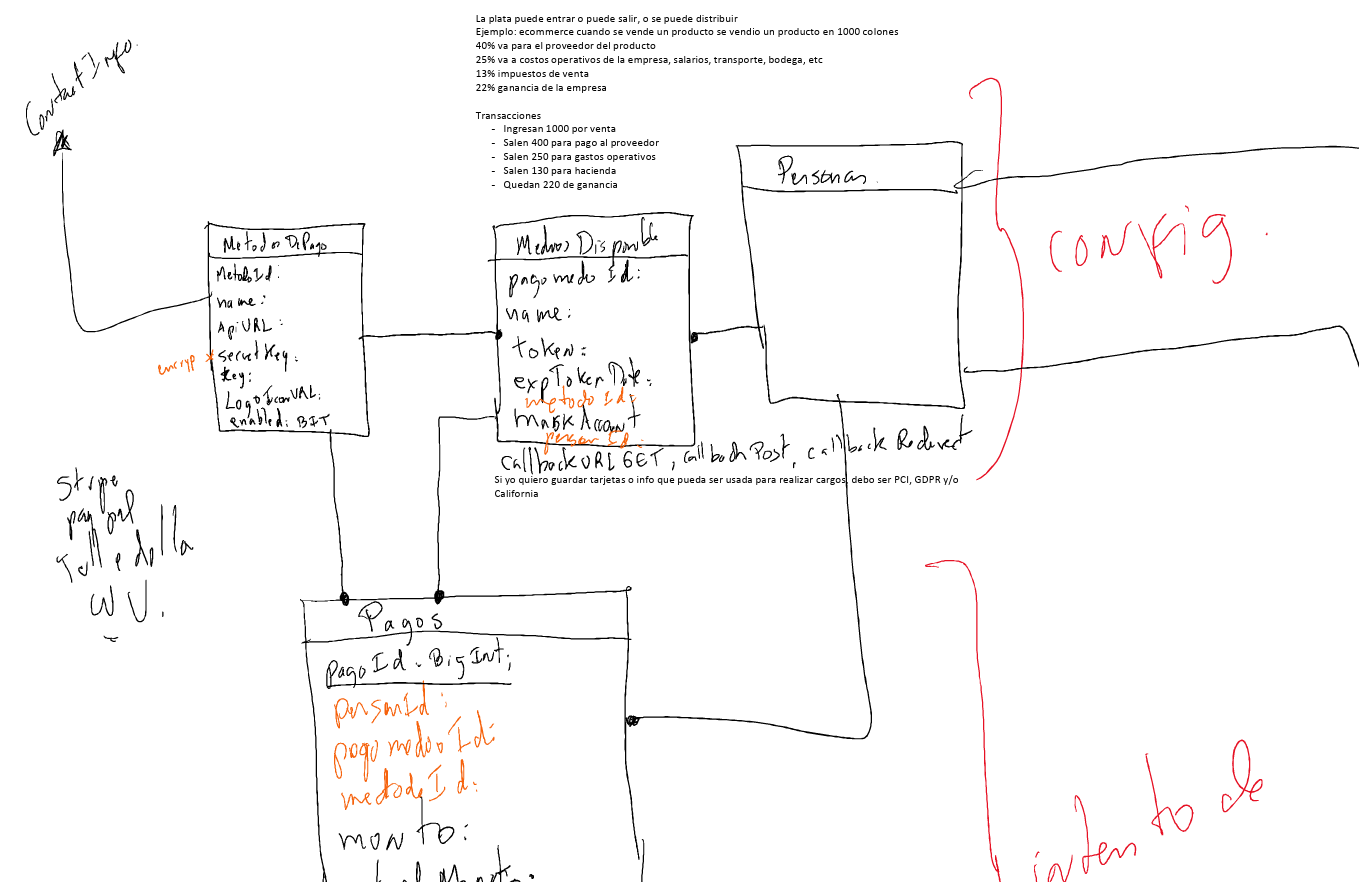 La plata puede entrar o puede salir, o se puede distribuir
Ejemplo: ecommerce cuando se vende un producto se vendio un producto en 1000 colones
40% va para el proveedor del producto
25% va a costos operativos de la empresa, salarios, transporte, bodega, etc
13% impuestos de venta
22% ganancia de la empresa
Transacciones
- Ingresan 1000 por venta
- Salen 400 para pago al proveedor
- Salen 250 para gastos operativos
- Salen 130 para hacienda
- Quedan 220 de ganancia
Contact Info.
Metodos DePago
MetodoId:
name:
ApiURL:
encryp
secretKey:
key:
LogoIconURL:
enabled: BIT
Medios Disponible
pago medio Id:
name:
token:
expTokenDate:
metodo Id:
maskAccount
person Id:
callbackURLGET, callbackPost, callback Redirect
Si yo quiero guardar tarjetas o info que pueda ser usada para realizar cargos, debo ser PCI, GDPR y/o
California
Personas.
config.
Stripe
paypal
WU.
Pagos
pagoId: BigInt;
personId:
pago medio Id:
metodoId:
monto:
intento de